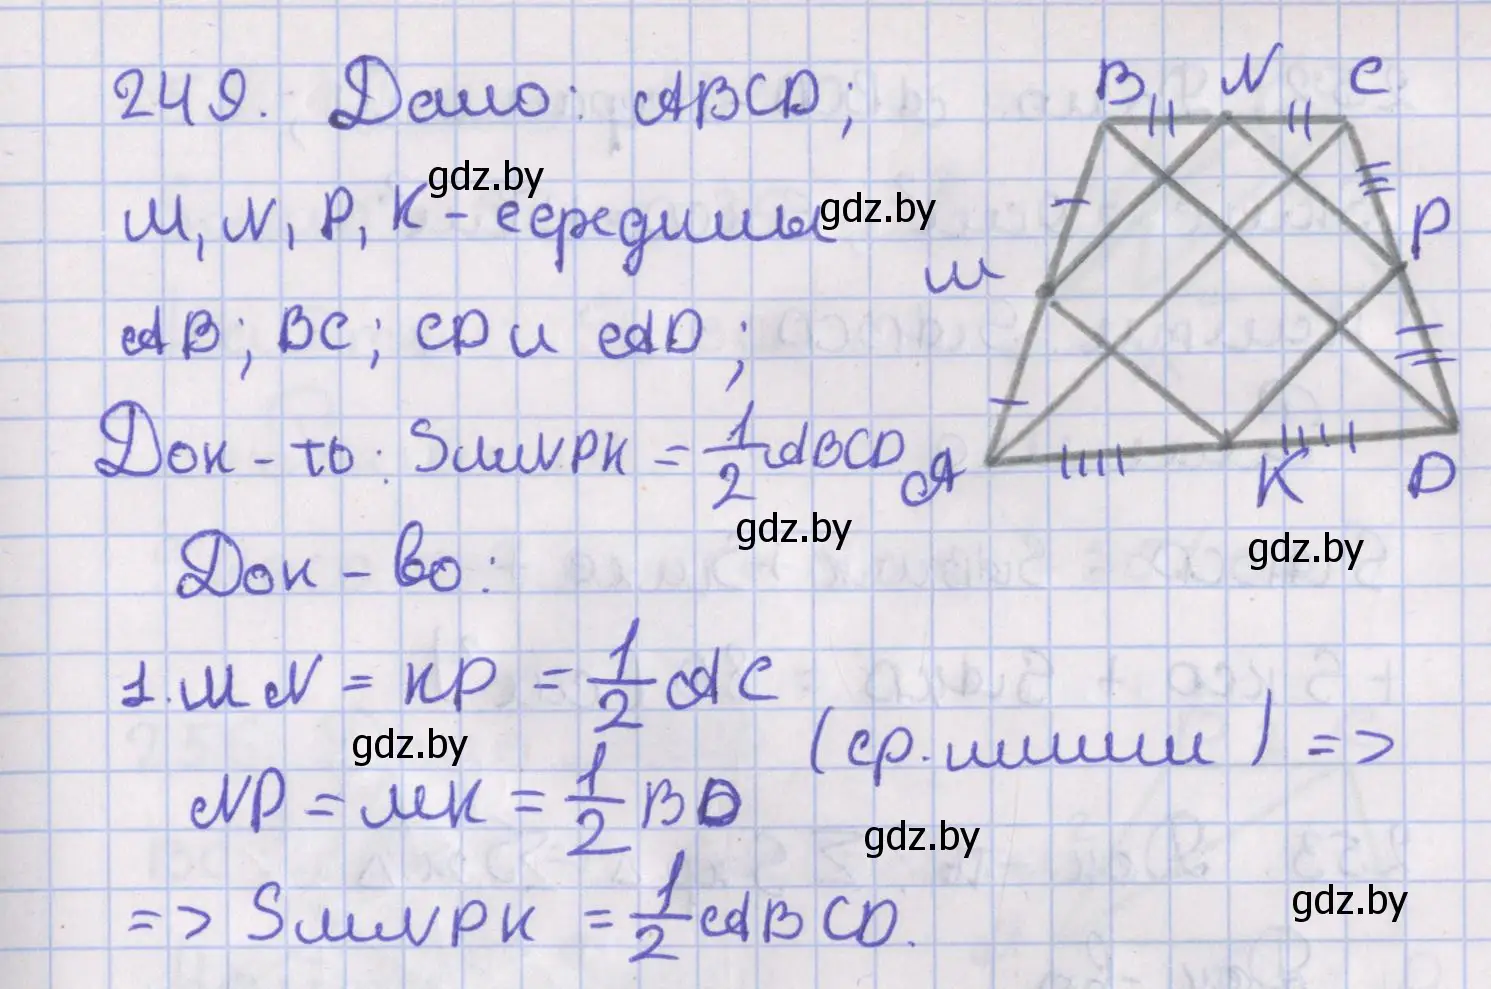 249. Дано: ABCD;
M, N, P, K - середины
AB; BC; CD и AD;
Док-ть: SMNPK = 1/2 ABCD
Док-во:
1. MN = KP = 1/2 AC
(ср. линии) =>
NP = MK = 1/2 BD
=> SMNPK = 1/2 ABCD.
B N C
M P
A K D
gdz.by
gdz.by
gdz.by
gdz.by
gdz.by
gdz.by
gdz.by